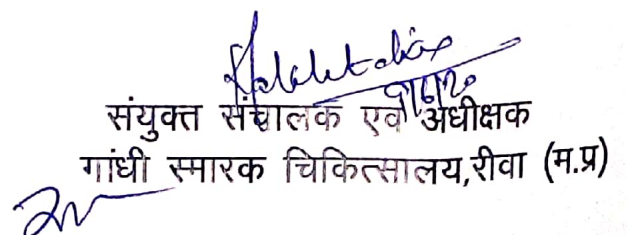 9/6/20
संयुक्त संचालक एवं अधीक्षक
गांधी स्मारक चिकित्सालय,रीवा (म.प्र)